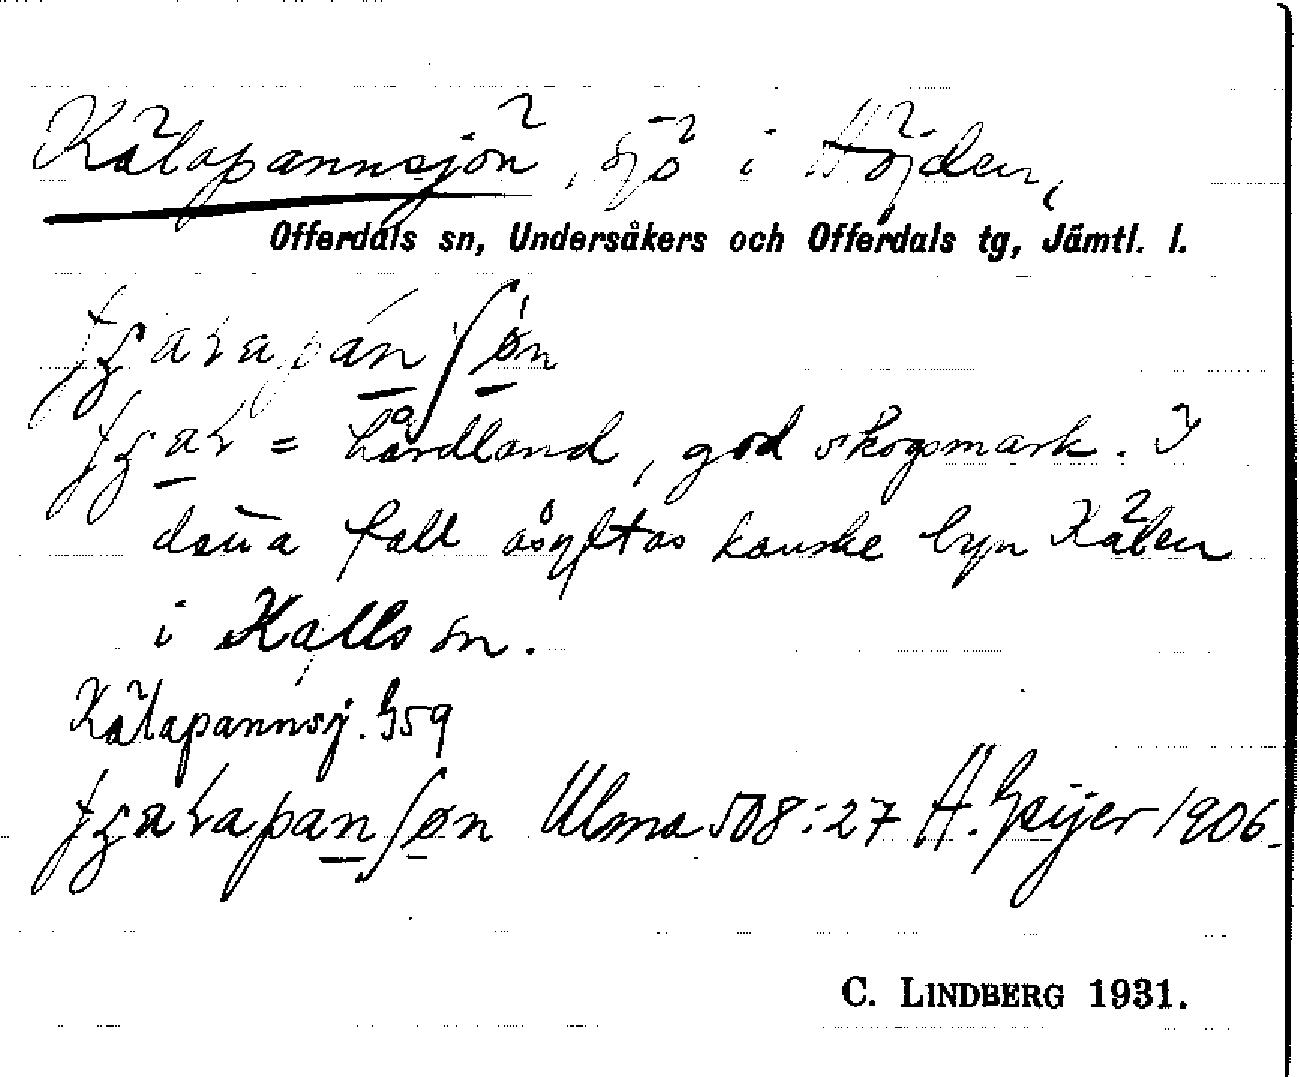 Kälapannsjön, sjö i Höjden,
Offerdals sn, Undersåkers och Offerdals tg, Jämtl. l.
= hårdland, god skogsmark. I
detta fall åsyftas kanske byn Kälen
i Kalls sn.
Kälapannsj. G59
Ulma 508:27 H. Geijer 1906.
C. LINDBERG 1931.